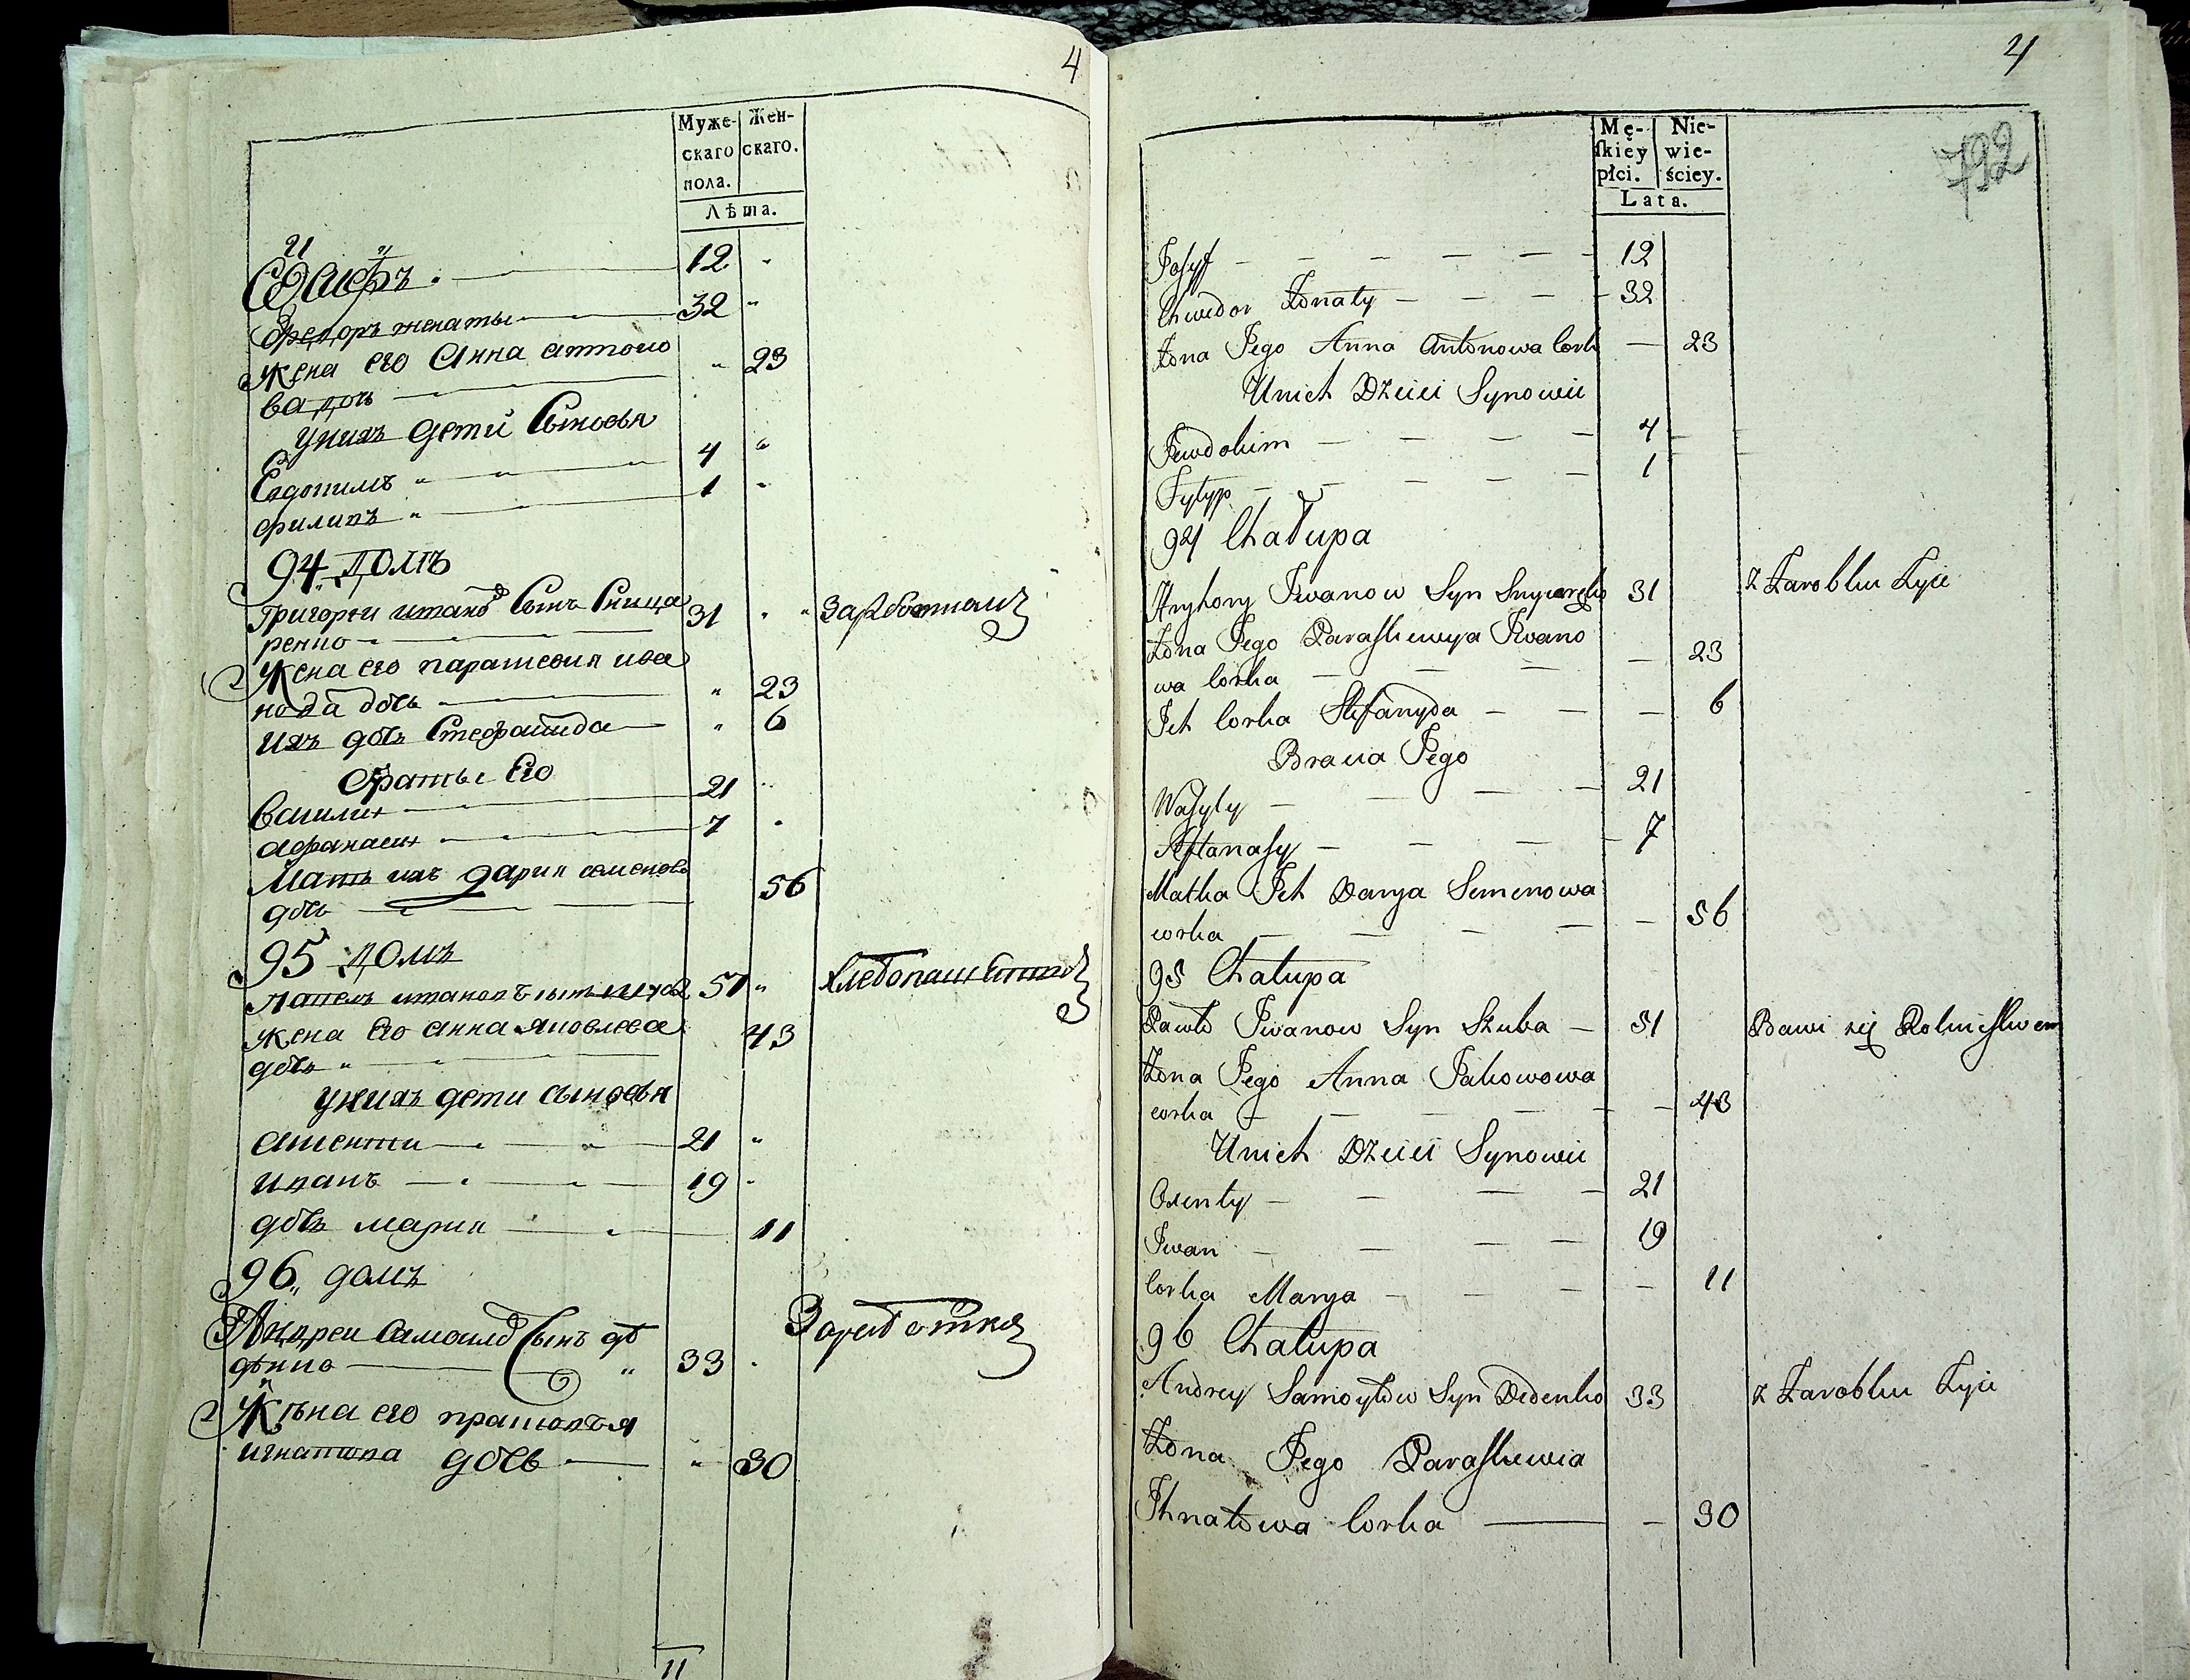 4
Муже- Жен-
скаго скаго.
пола.
Лѣта.
Іосифъ 12 "
Федоръ женаты 32 "
Жена его Анна антоно " 23
ва дочь
Унихъ дети Сыновья
Евдокимъ " 4 "
филипъ " 1 "
94 домъ
Григореи ивановъ Сынъ Сница 31 "
ренко
Жена его парасковия ива
нова дочь " 23
Ихъ дочь Стефанида " 6
братьи Его
Василии 21 "
афанасии 7 "
Мать ихъ дария семенова
дочь 56
95 домъ
павелъ ивановъ сынъ 51 "
жена Его анна яковлева 43
дочь "
унихъ дети сыновья
Аксенти 21 "
иванъ 19 "
дочь мария 11
96 домъ
Андреи Самоиловъ Сынъ де
денко " 33
Жена его парасковья
игнатова дочь " 30
11
4
Mę- Nie-
ſkiey wie-
płci. ściey.
Lata.
792
Josyf 12
Chwedor Żonaty 32
Żona Jego Anna Antonowa Cork 23
Unich Dzieci Synowie
Jewdokim 4
Fylyp 1
94 Chałupa
Hryhory Iwanow Syn Snycarenko 31 z Zarobku Żyie
Żona Jego Paraskiewya Iwano
wa Corka 23
Ich Corka Stefanyda 6
Bracia Jego
Wasyly 21
Aftanasy 7
Matka Ich Darya Semenowa
corka 56
95 Chałupa
Pawło Iwanow Syn Skuba 51 Bawi się Rolnictwem
Żona Jego Anna Jakowowa
corka 43
Unich Dzieci Synowie
Oxenty 21
Iwan 19
Corka Marya 11
96 Chałupa
Andrey Samoyłow Syn Dedenko 33 z Zarobku Żyie
Żona Jego Paraskiewia
Ihnatowa Corka 30